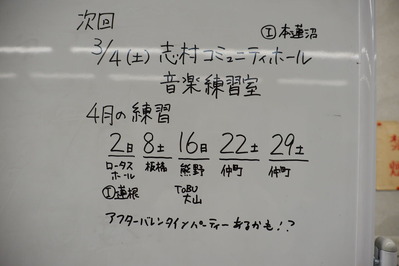 次回
Ⓘ本蓮沼
3/4(土)志村コミュニティホール
音楽練習室
4月の練習
2日 8土 16日 22土 29土
ロータスホール 板橋 熊野 仲町 仲町
Ⓘ蓮根 TOBU大山
アフターバレンタインパーティーあるかも!?